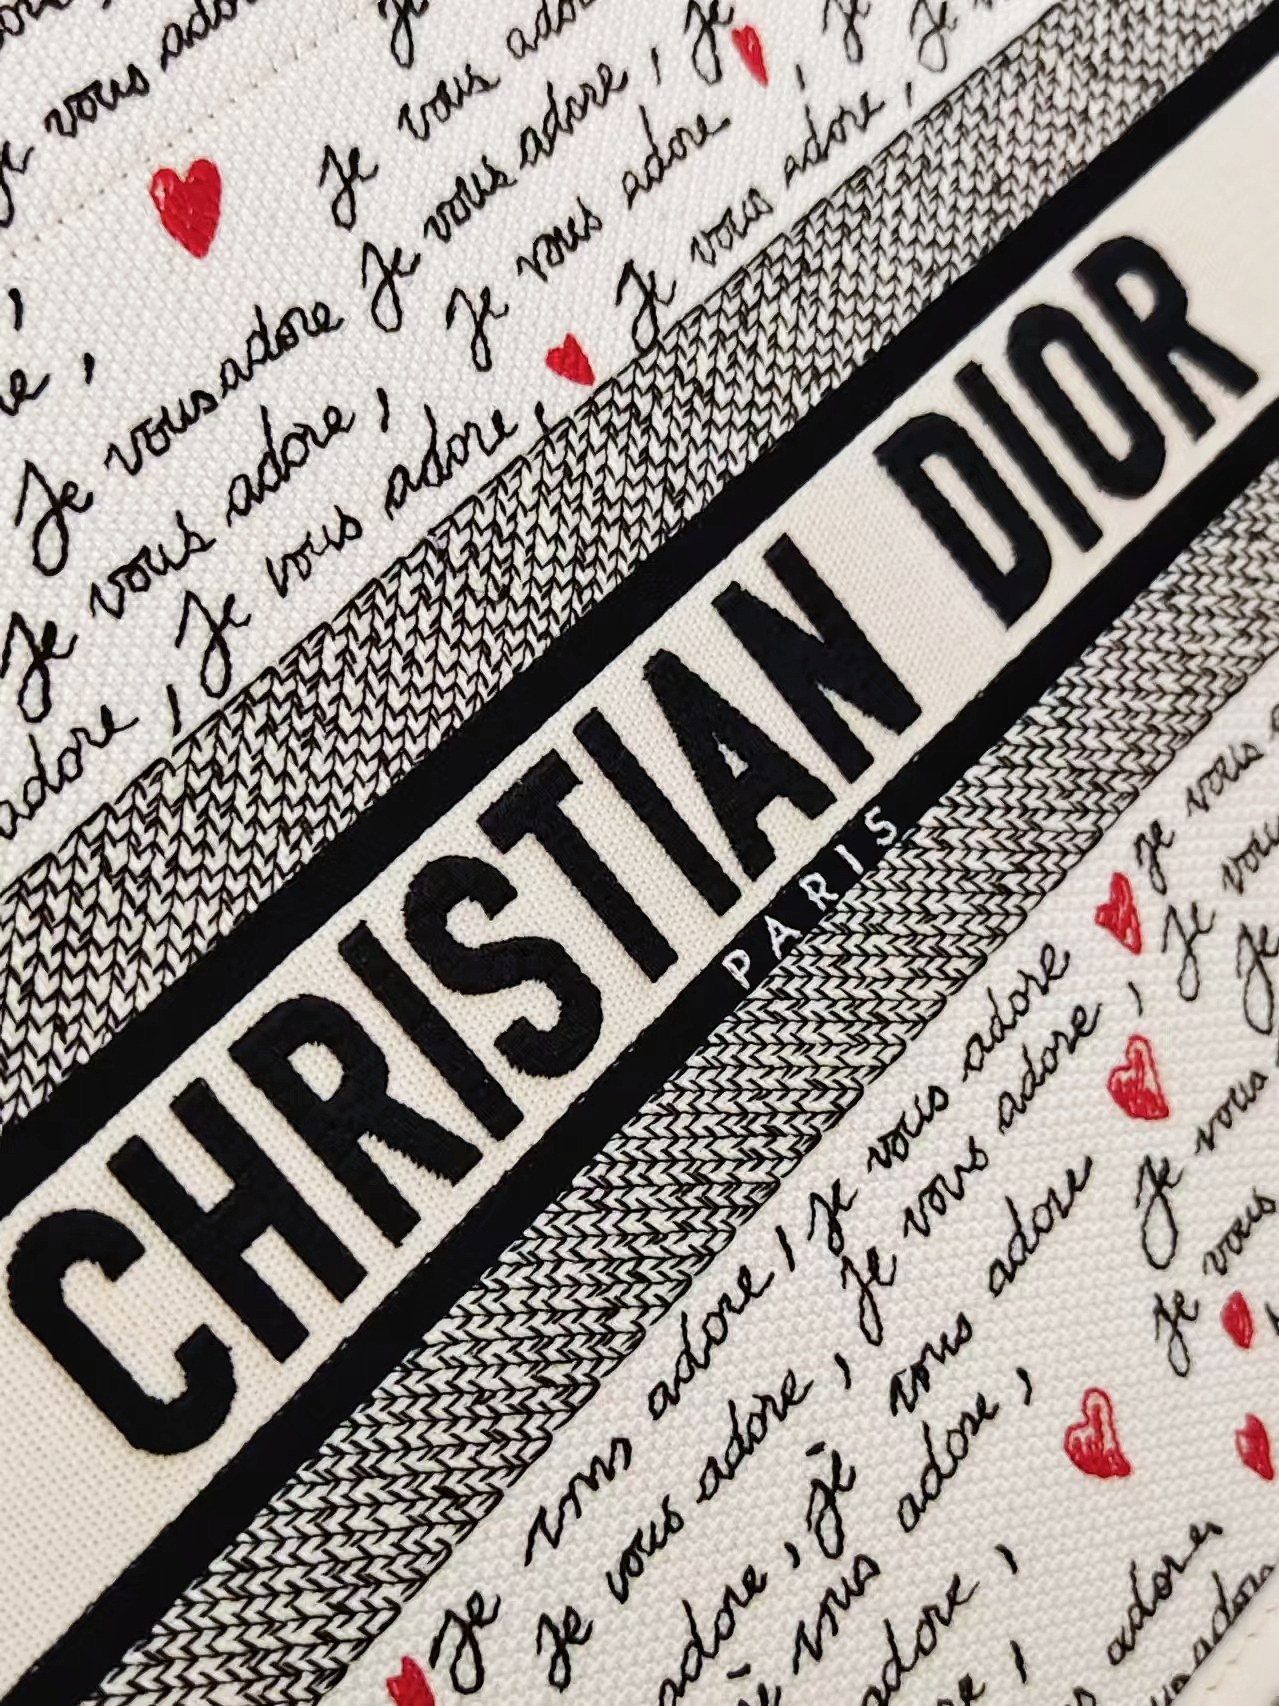 vous
Je
Je vous
Je vous adore, Je
Je vous adore Je vous adore,
Je vous adore, Je vous adore,
adore, Je vous adore, Je vous adore,
CHRISTIAN DIOR
PARIS
Je vous adore, Je vous adore Je vous
Je vous adore, Je vous adore, Je
adore, Je vous adore Je vous
Je vous adore, Je vous
adore,
adore
adore